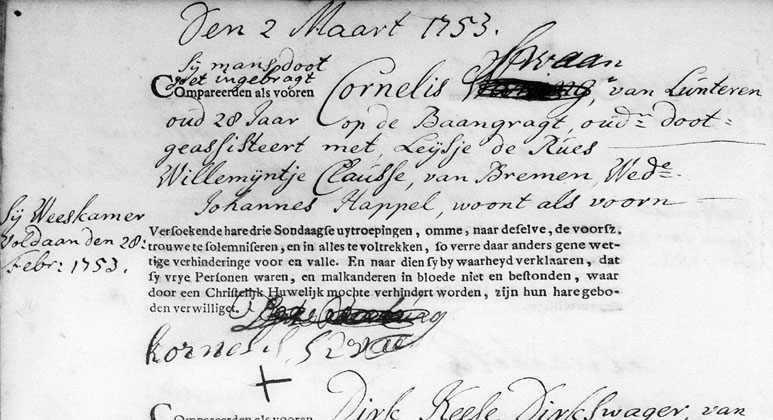 Den 2 Maart 1753.
Sij mans doot
met ingebragt
Compareerden als vooren Cornelis Swaan, van Lunteren
oud 28 Jaar op de Baangragt, oudrs doot
geassisteert met, Leijsje de Rues
Willemijntje Clausse, van Bremen, Wede
Johannes Happel, woont als voorn
Sij Weeskamer
voldaan den 28:
Febr: 1753.
Versoekende hare drie Sondaagse uytroepingen, omme, naar deselve, de voorsz.
trouwe te solemniseren, en in alles te voltrekken, so verre daar anders gene wet-
tige verhinderinge voor en valle. En naar dien sy by waarheyd verklaaren, dat
sy vrye Personen waren, en malkanderen in bloede niet en bestonden, waar
door een Christelijk Huwelijk mochte verhindert worden, zijn hun hare gebo-
den verwilliget.
kornelis
+
Compareerden als vooren Dirk Keese Dirkswager, van